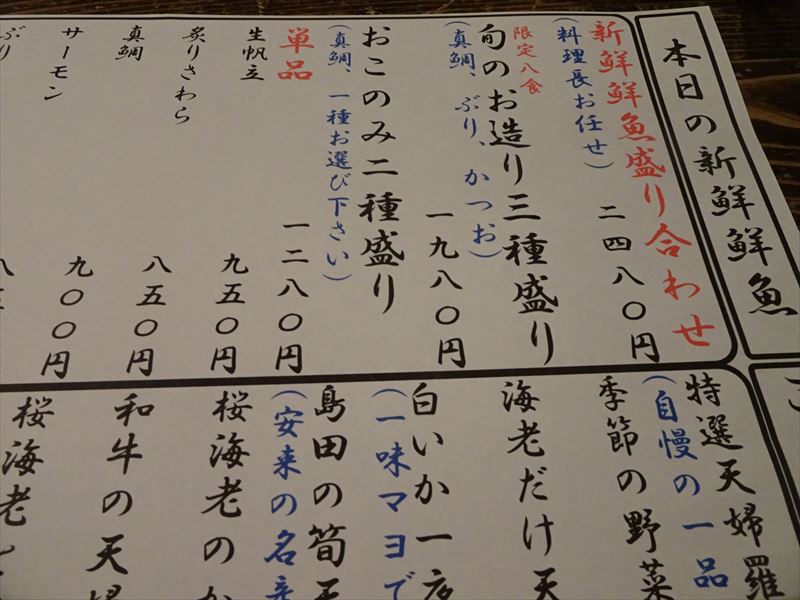 本日の新鮮鮮魚
新鮮鮮魚盛り合わせ
(料理長お任せ) 二四八〇円
限定八食
旬のお造り三種盛り
(真鯛、ぶり、かつお)
一九八〇円
おこのみ二種盛り
(真鯛、一種お選び下さい)
単品
生帆立 一二八〇円
炙りさわら 九五〇円
真鯛 八五〇円
サーモン 九〇〇円
ぶり
特選天婦羅
(自慢の一品
季節の野菜
海老だけ天
白いか一夜
(一味マヨで
島田の筍天
(安来の名産
桜海老のか
和牛の天婦
桜海老